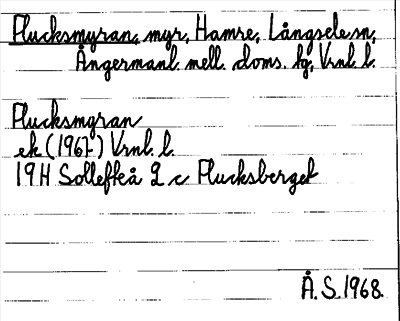 Flucksmyran, myr, Hamre, Långsele sn,
Ångermanl. mell. doms. hg, Vrnl. l.
Flucksmyran
ek (1967) Vrnl. l.
19H Sollefteå 2 c Flucksberget
Å. S. 1968.